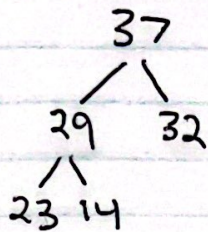 37
29 32
23 14